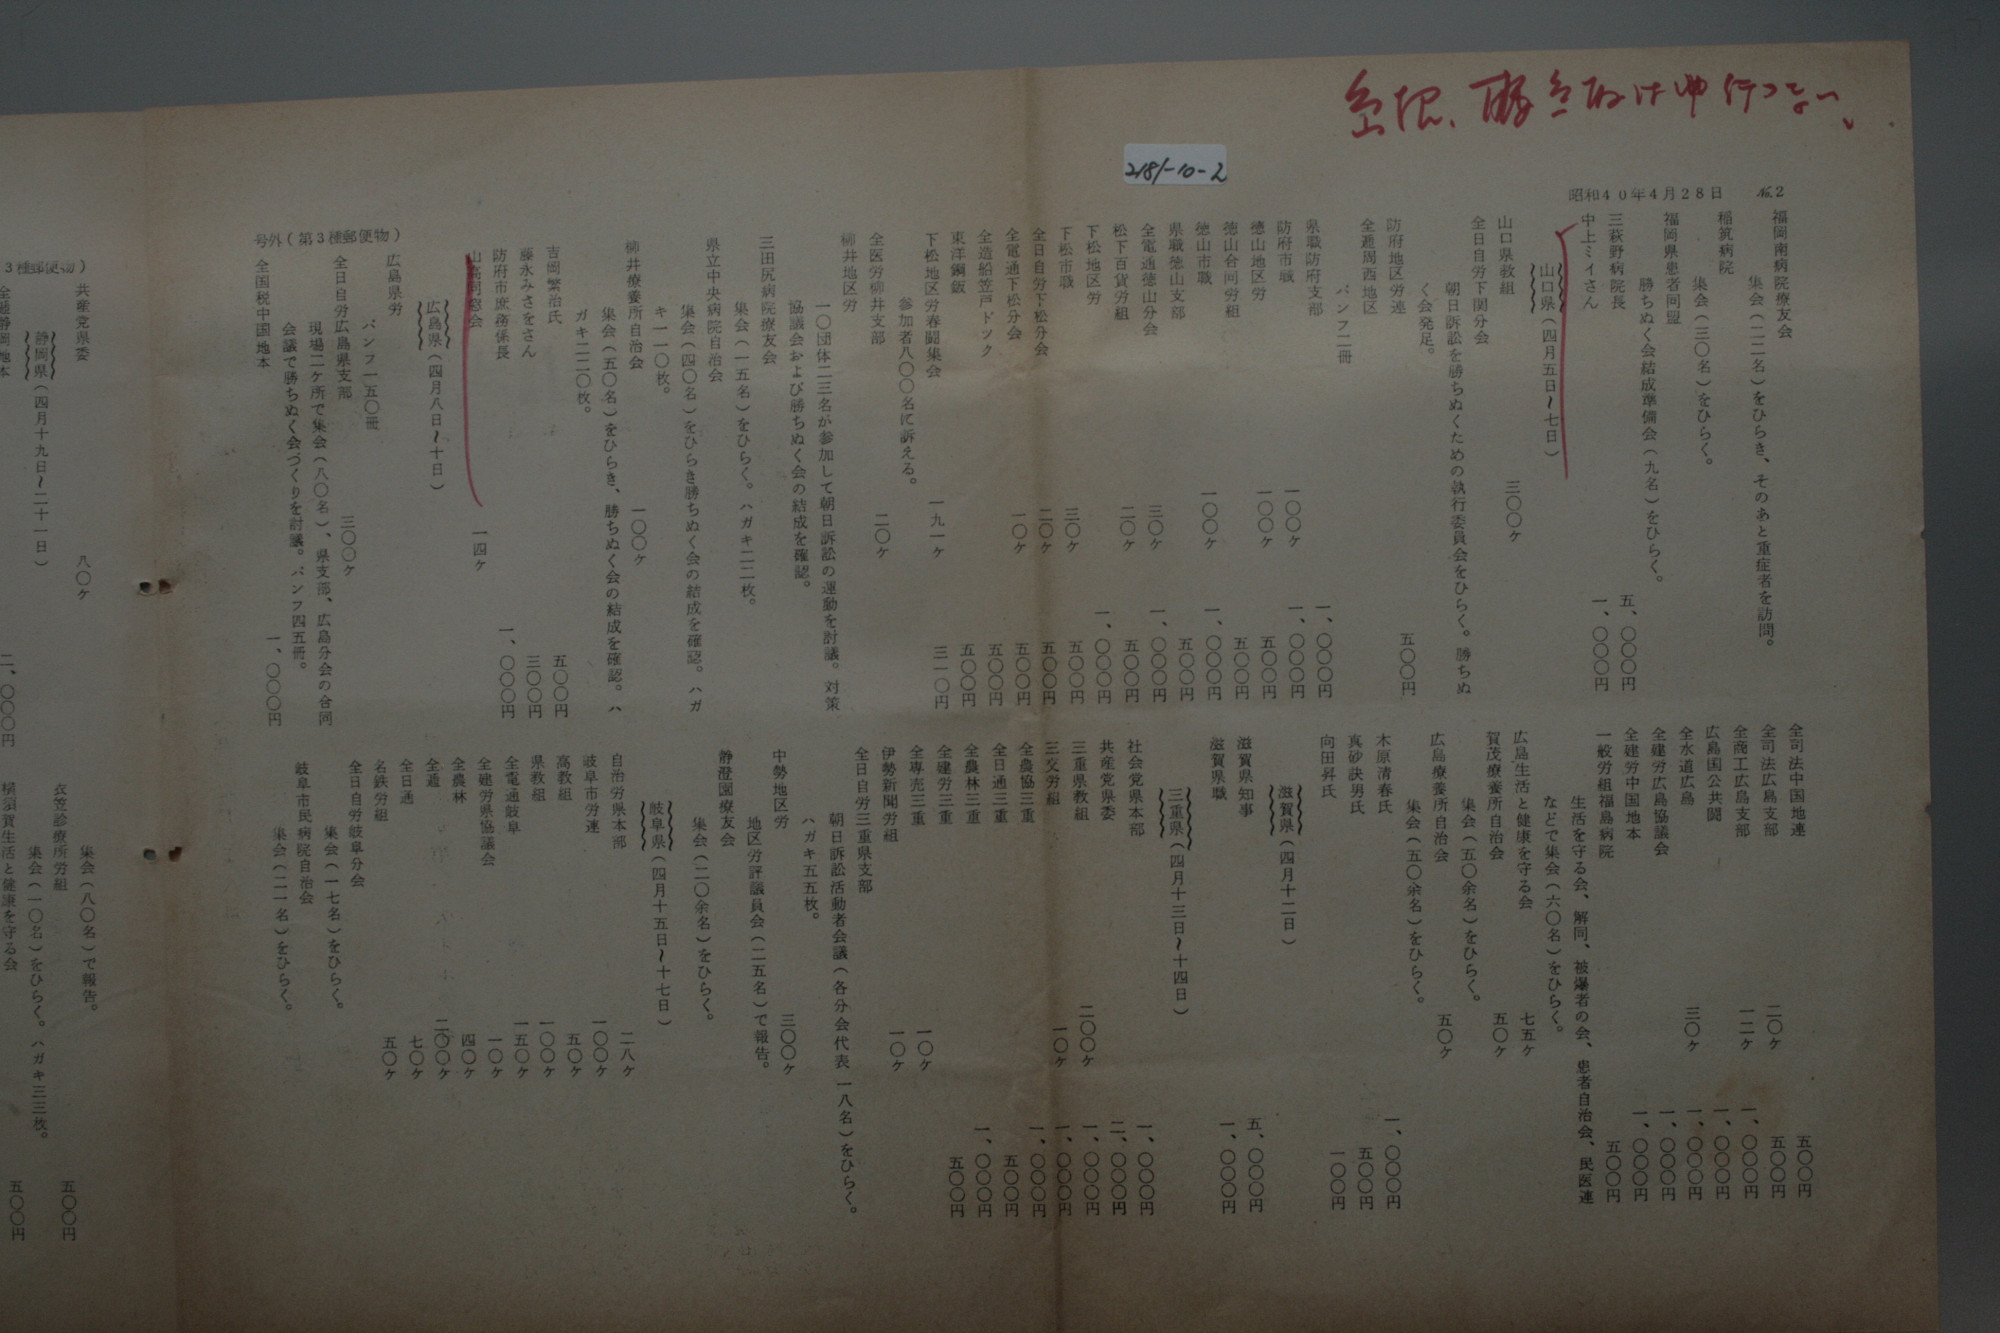 2181-10-2
昭和40年4月28日 №2
福岡南病院療友会
集会(二二名)をひらき、そのあと重症者を訪問。
稲筑病院
集会(三〇名)をひらく。
福岡県患者同盟
勝ちぬく会結成準備会(九名)をひらく。
三萩野病院長 五、〇〇〇円
中上ミイさん 一、〇〇〇円
山口県(四月五日~七日)
山口県教組 三〇〇ヶ
全日自労下関分会
朝日訴訟を勝ちぬくための執行委員会をひらく。勝ちぬ
く会発足。
防府地区労連 五〇〇円
全逓周西地区
パンフ二冊
県職防府支部 一、〇〇〇円
防府市職 一〇〇ヶ 一、〇〇〇円
徳山地区労 一〇〇ヶ 五〇〇円
徳山合同労組 五〇〇円
徳山市職 一〇〇ヶ 一、〇〇〇円
県職徳山支部 五〇〇円
全電通徳山分会 三〇ヶ 一、〇〇〇円
松下百貨労組 二〇ヶ 五〇〇円
下松地区労 一、〇〇〇円
下松市職 三〇ヶ 五〇〇円
全日自労下松分会 二〇ヶ 五〇〇円
全電通下松分会 一〇ヶ 五〇〇円
全造船笠戸ドック 五〇〇円
東洋鋼鈑 五〇〇円
下松地区労春闘集会 一九一ヶ 三一〇円
参加者八〇〇名に訴える。
全医労柳井支部 二〇ヶ
柳井地区労
一〇団体二三名が参加して朝日訴訟の運動を討議。対策
協議会および勝ちぬく会の結成を確認。
三田尻病院療友会
集会(一五名)をひらく。ハガキ二二枚。
県立中央病院自治会
集会(四〇名)をひらき勝ちぬく会の結成を確認。ハガ
キ一一〇枚。
柳井療養所自治会 一〇〇ヶ
集会(五〇名)をひらき、勝ちぬく会の結成を確認。ハ
ガキ二二〇枚。
吉岡繁治氏 五〇〇円
藤永みさをさん 三〇〇円
防府市庶務係長 一、〇〇〇円
山高同窓会 一四ヶ
広島県(四月八日~十日)
広島県労
パンフ一五〇冊
全日自労広島県支部 三〇〇ヶ
現場二ケ所で集会(八〇名)、県支部、広島分会の合同
会議で勝ちぬく会づくりを討議。パンフ四五冊。
全国税中国地本 一、〇〇〇円
号外(第3種郵便物)
全司法中国地連 五〇〇円
全司法広島支部 二〇ヶ 五〇〇円
全商工広島支部 一二ヶ 一、〇〇〇円
広島国公共闘 一、〇〇〇円
全水道広島 三〇ヶ 一、〇〇〇円
全建労広島協議会 一、〇〇〇円
全建労中国地本 一、〇〇〇円
一般労組福島病院 五〇〇円
生活を守る会、解同、被爆者の会、患者自治会、民医連
などで集会(六〇名)をひらく。
広島生活と健康を守る会 七五ヶ
賀茂療養所自治会 五〇ヶ
集会(五〇余名)をひらく。
広島療養所自治会 五〇ヶ
集会(五〇余名)をひらく。
木原清春氏 一、〇〇〇円
真砂訣男氏 五〇〇円
向田昇氏 一〇〇円
滋賀県(四月十二日)
滋賀県知事 五、〇〇〇円
滋賀県職 一、〇〇〇円
三重県(四月十三日~十四日)
社会党県本部 一、〇〇〇円
共産党県委 二、〇〇〇円
三重県教組 二〇〇ヶ 一、〇〇〇円
三交労組 一〇ヶ 一、〇〇〇円
全農協三重 一、〇〇〇円
全日通三重 五〇〇円
全農林三重 一、〇〇〇円
全建労三重 五〇〇円
全専売三重 一〇ヶ
伊勢新聞労組 一〇ヶ
全日自労三重県支部
朝日訴訟活動者会議(各分会代表一八名)をひらく。
ハガキ五五枚。
中勢地区労 三〇〇ヶ
地区労評議員会(二五名)で報告。
静澄園療友会
集会(二〇余名)をひらく。
岐阜県(四月十五日~十七日)
自治労県本部 二八ヶ
岐阜市労連 一〇〇ヶ
高教組 五〇ヶ
県教組 一〇〇ヶ
全電通岐阜 一五〇ヶ
全建労県協議会 一〇ヶ
全農林 四〇ヶ
全逓 二〇〇ヶ
全日通 七〇ヶ
名鉄労組 五〇ヶ
全日自労岐阜分会
集会(一七名)をひらく。
岐阜市民病院自治会
集会(二一名)をひらく。
3種郵便物)
共産党県委 八〇ヶ
静岡県(四月十九日~二十一日)
全逓静岡地本 二、〇〇〇円
集会(八〇名)で報告。
衣笠診療所労組 五〇〇円
集会(一〇名)をひらく。ハガキ三三枚。
横須賀生活と健康を守る会 五〇〇円